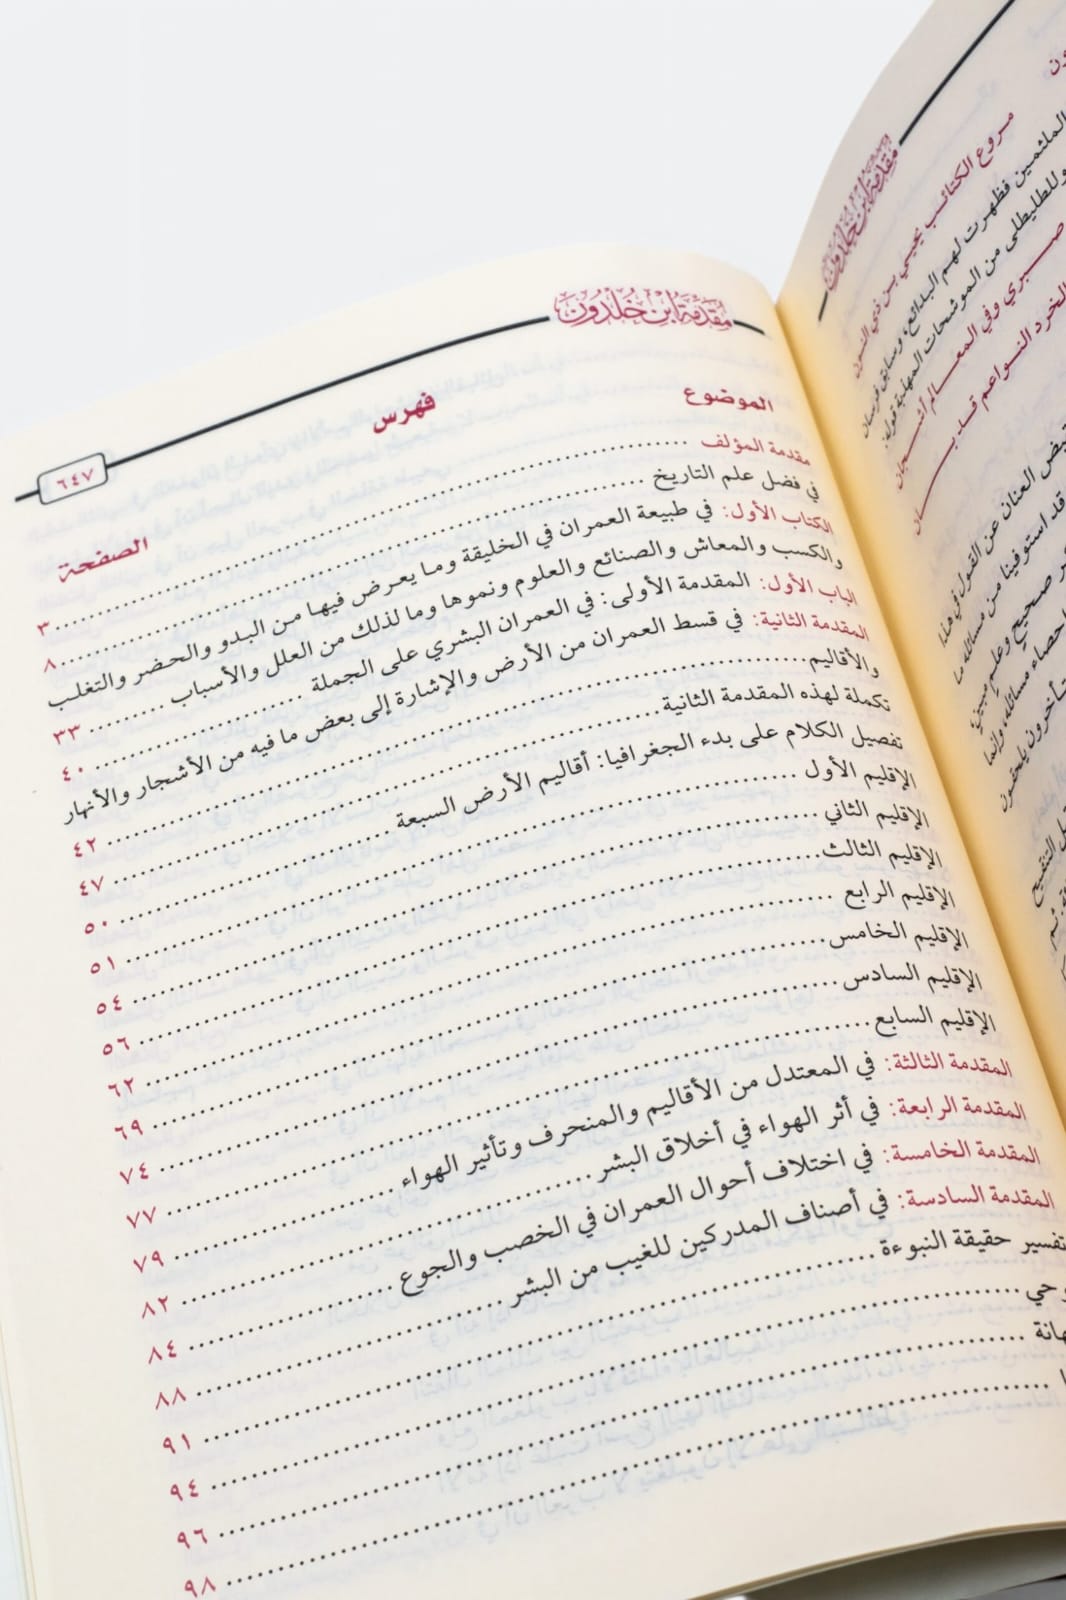 مقدمة ابن خلدون
مروع الكتائب يحيى بن ذي النون
الملثمين فظهرت لهم البدائع، وسابق فرسان
وللطليطلي من الموشحات المهذبة قوله:
صبري وفي المعالم أشجان
الخرد النواعم قد
العنان عن القول في هذا
قد استوفينا من مسائله ما
صحيح وعلم مبين
إحصاء مسائله وإنما
يلحقون
التنقيح
ثم
مُقَدِّمَة ابْن خُلْدُون
٦٤٧
فهرس
الموضوع
الصفحة
مقدمة المؤلف ........ ٣
في فضل علم التاريخ ........ ٨
الكتاب الأول: في طبيعة العمران في الخليقة وما يعرض فيها من البدو والحضر والتغلب
والكسب والمعاش والصنائع والعلوم ونموها وما لذلك من العلل والأسباب ........ ٣٣
الباب الأول: المقدمة الأولى: في العمران البشري على الجملة ........ ٤٠
المقدمة الثانية: في قسط العمران من الأرض والإشارة إلى بعض ما فيه من الأشجار والأنهار
والأقاليم ........ ٤٢
تكملة لهذه المقدمة الثانية ........ ٤٧
تفصيل الكلام على بدء الجغرافيا: أقاليم الأرض السبعة ........ ٥٠
الإقليم الأول ........ ٥١
الإقليم الثاني ........ ٥٤
الإقليم الثالث ........ ٥٦
الإقليم الرابع ........ ٦٢
الإقليم الخامس ........ ٦٩
الإقليم السادس ........ ٧٤
الإقليم السابع ........ ٧٧
المقدمة الثالثة: في المعتدل من الأقاليم والمنحرف وتأثير الهواء ........ ٧٩
المقدمة الرابعة: في أثر الهواء في أخلاق البشر ........ ٨٢
المقدمة الخامسة: في اختلاف أحوال العمران في الخصب والجوع ........ ٨٤
المقدمة السادسة: في أصناف المدركين للغيب من البشر ........ ٨٨
تفسير حقيقة النبوءة ........ ٩١
وحي ........ ٩٤
هانة ........ ٩٦
........ ٩٨